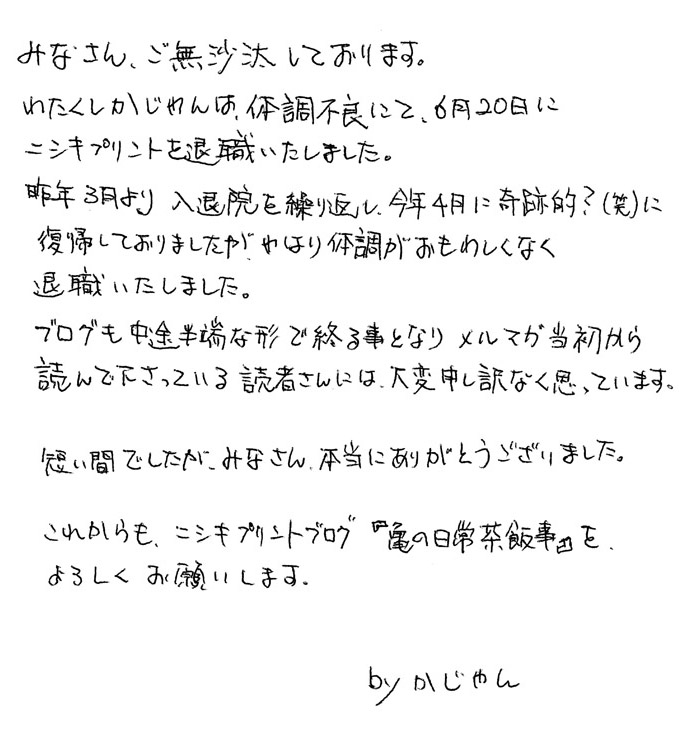 みなさん、ご無沙汰しております。
わたくしかじやんは、体調不良にて、6月20日に
ニシキプリントを退職いたしました。
昨年3月より入退院を繰り返し、今年4月に奇跡的?(笑)に
復帰しておりましたが、やはり体調がおもわしくなく
退職いたしました。
ブログも中途半端な形で終る事となり メルマガ当初から
読んで下さっている読者さんには、大変申し訳なく思っています。
短い間でしたが、みなさん、本当にありがとうございました。
これからも、ニシキプリントブログ『亀の日常茶飯事』を、
よろしくお願いします。
by かじやん